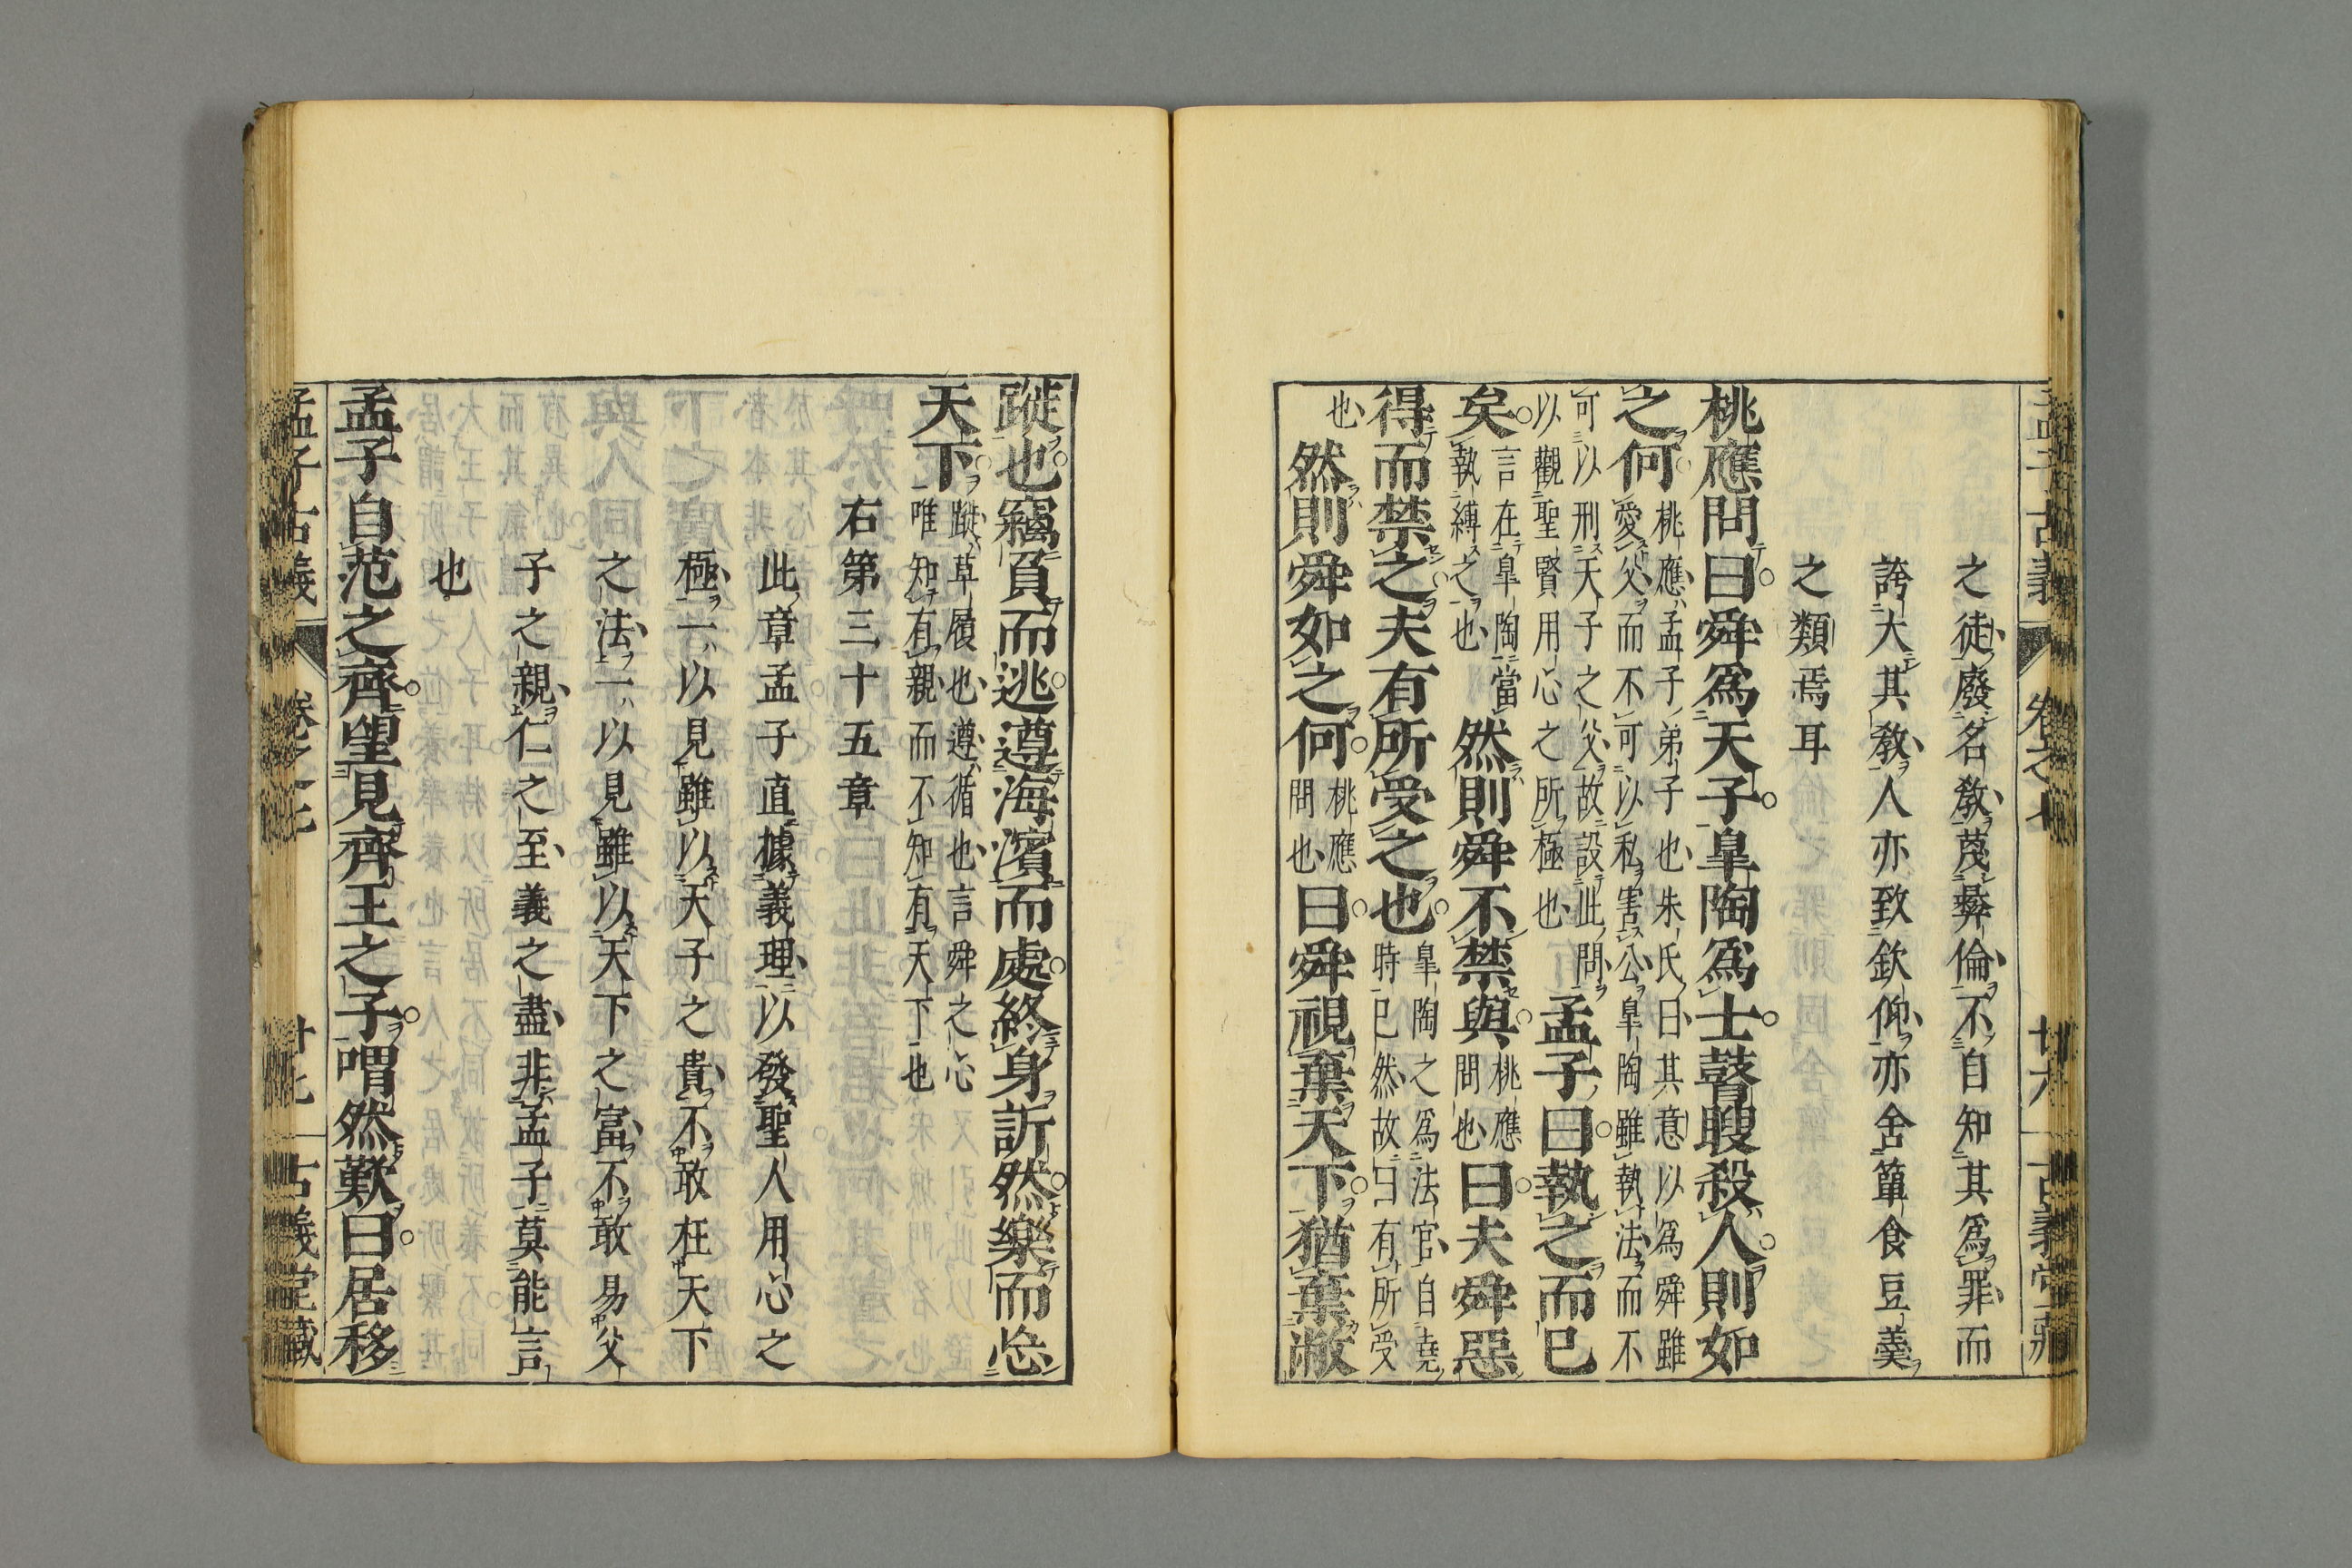 孟子古義 卷之七 廿六 古義堂藏
之徒廢名教蔑彝倫不自知其爲罪而
誇大其教人亦致欽仰亦舍簞食豆羹
之類焉耳
桃應問曰舜爲天子皐陶爲士瞽瞍殺人則如
之何
桃應孟子弟子也朱氏曰其意以爲舜雖
愛父而不可以私害公皐陶雖執法而不
可以刑天子之父故設此問
以觀聖賢用心之所極也
孟子曰執之而已
矣
言在皐陶當
執縛之也
然則舜不禁與
桃應
問也
曰夫舜惡
得而禁之夫有所受之也
皐陶之爲法官自堯
時已然故曰有所受
也
然則舜如之何
桃應
問也
曰舜視棄天下猶棄敝
蹝也竊負而逃遵海濱而處終身訢然樂而忘
天下
蹝草履也遵循也言舜之心
唯知有親而不知有天下也
右第三十五章
此章孟子直據義理以發聖人用心之
極一以見雖以天子之貴不敢枉天下
之法一以見雖以天下之富不敢易父
子之親仁之至義之盡非孟子莫能言
也
孟子自范之齊望見齊王之子喟然歎曰居移
孟子古義 卷之七 廿七 古義堂藏